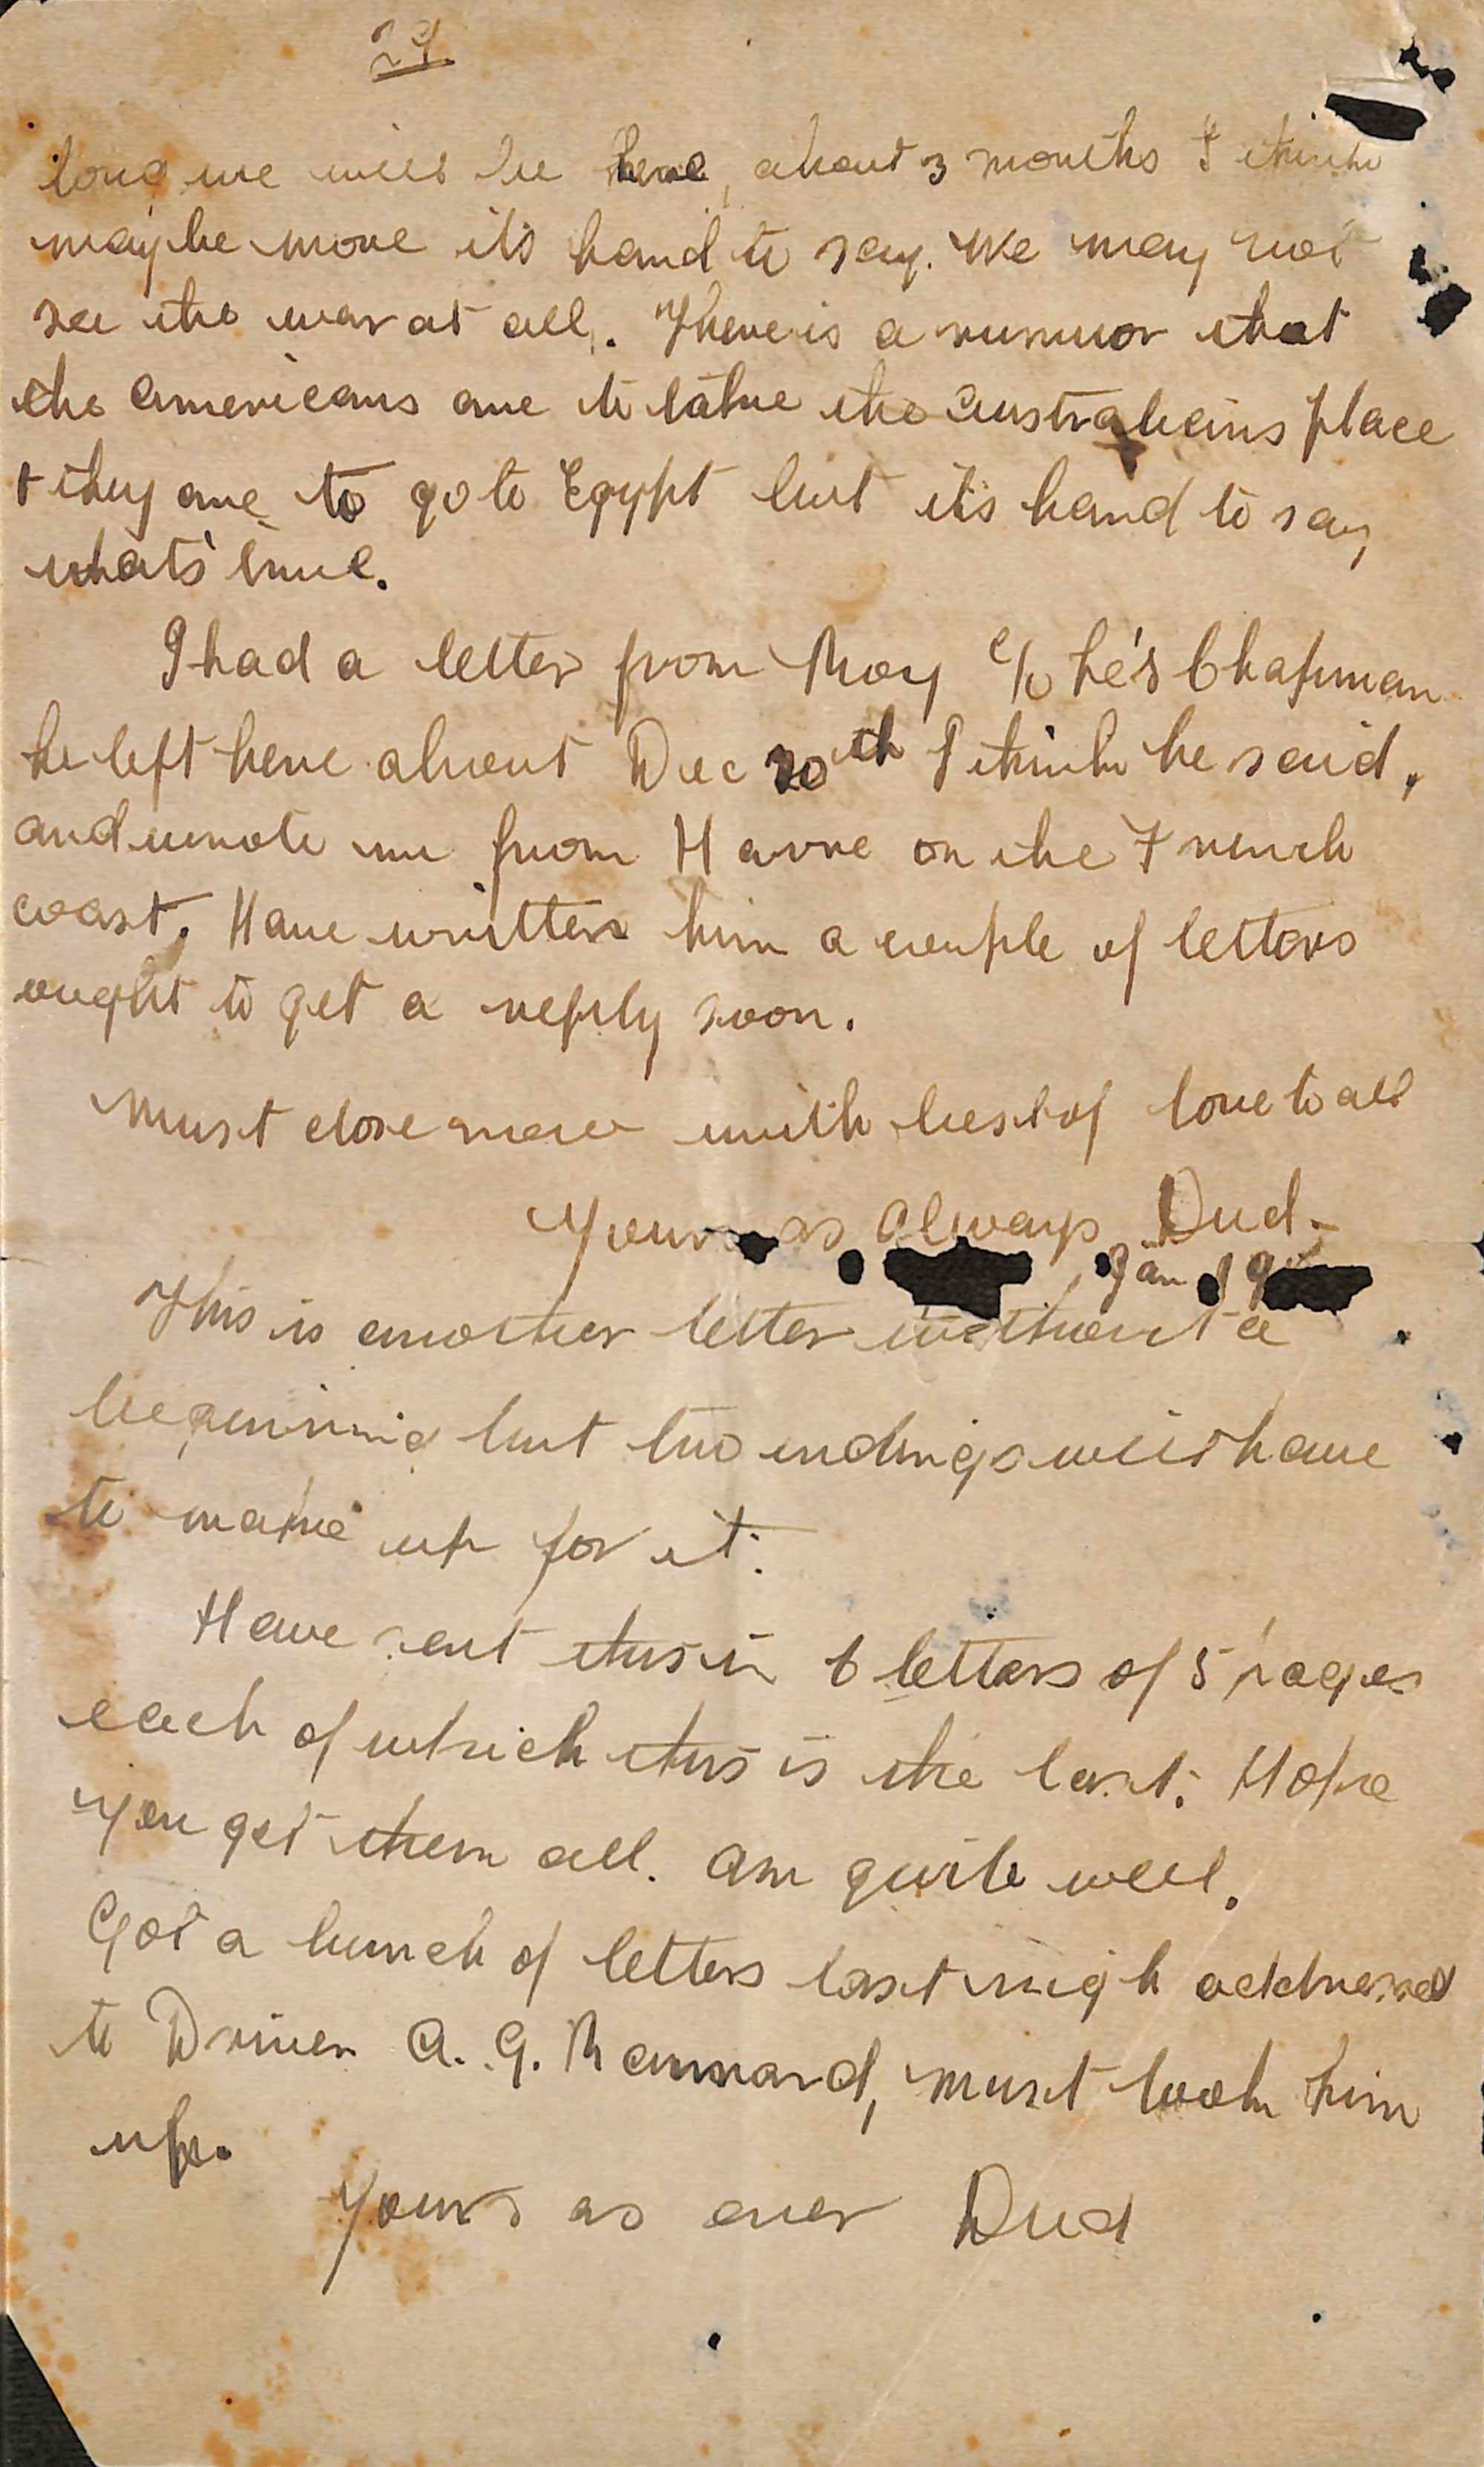 29.
long we will be here, about 3 months I think
maybe more its hard to say. We may not
see the war at all. There is a rumuor that
the Americans are to take the Australians place
+ they are to go to Egypt but its hard to say
whats' true.
I had a letter from Roy c/o he's Chapman
he left here about Dec 20th I think he said,
and wrote me from Havre on the French
coast. Have written him a couple of letters
ought to get a reply soon.
Must close now with best of love to all
Yours as always Dud.
Jan 9
This is another letter without a
beginning but two endings will have
to make up for it.
Have sent this in 6 letters of 5 pages
each of which this is the last. Hope
you get them all. Am quite well.
Got a bunch of letters last nigh addressed
to Driver A. G. Rannard, must look him
up.
Yours as ever Dud